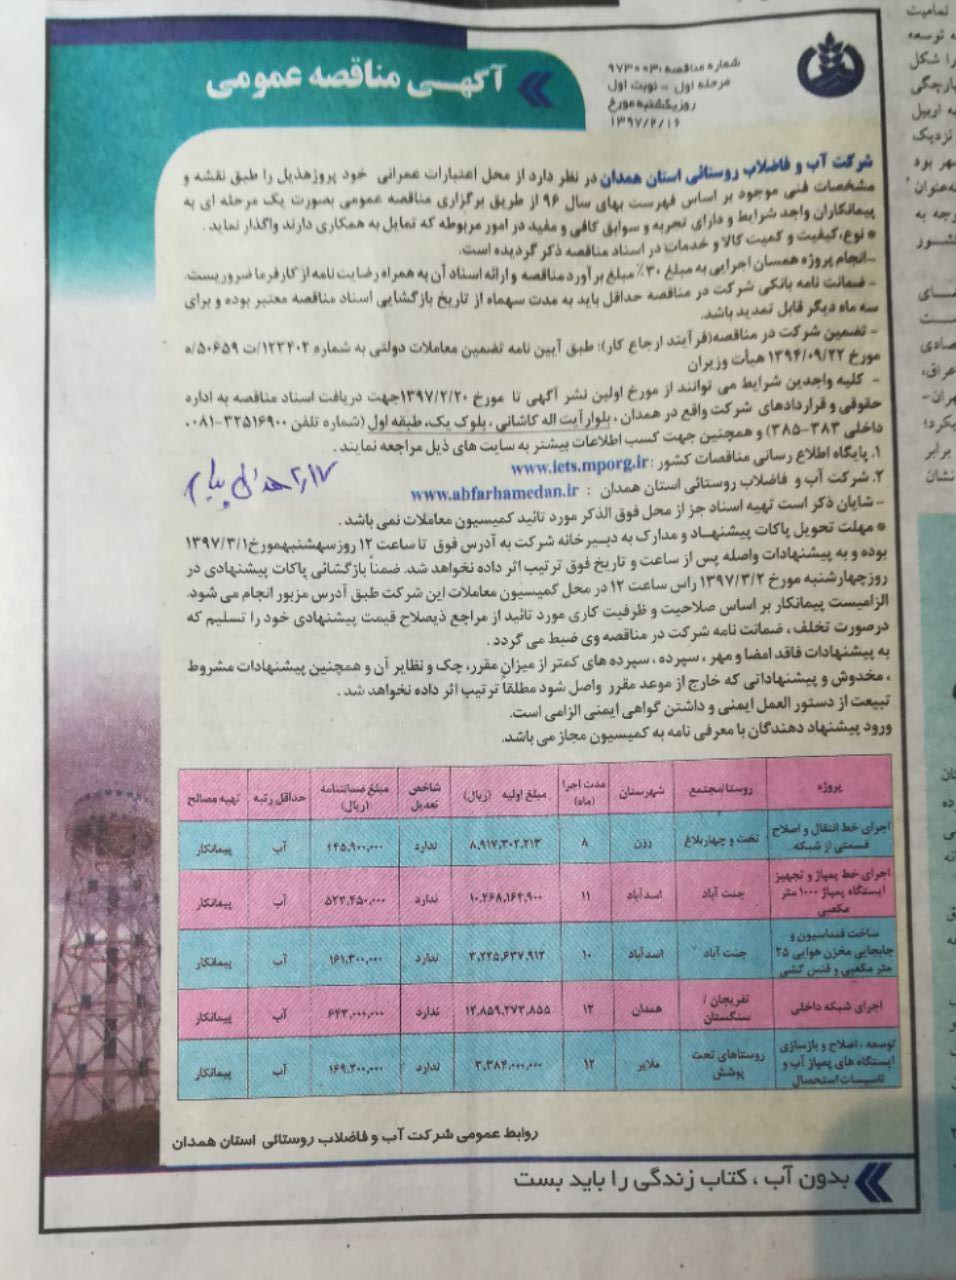 آگهی مناقصه عمومی
شماره مناقصه: ۹۷۳۰۰۳۱
مرحله اول - نوبت اول
روزیکشنبه مورخ
۱۳۹۷/۲/۱۶
شرکت آب و فاضلاب روستائی استان همدان در نظر دارد از محل اعتبارات عمرانی خود پروژهذیل را طبق نقشه و
مشخصات فنی موجود بر اساس فهرست بهای سال ۹۶ از طریق برگزاری مناقصه عمومی بصورت یک مرحله ای به
پیمانکاران واجد شرایط و دارای تجربه و سوابق کافی و مفید در امور مربوطه که تمایل به همکاری دارند واگذار نماید .
* نوع، کیفیت و کمیت کالا و خدمات در اسناد مناقصه ذکر گردیده است.
-انجام پروژه همسان اجرایی به مبلغ ۳۰٪ مبلغ برآورد مناقصه و ارائه اسناد آن به همراه رضایت نامه از کارفرما ضروریست.
- ضمانت نامه بانکی شرکت در مناقصه حداقل باید به مدت سهماه از تاریخ بازگشایی اسناد مناقصه معتبر بوده و برای
سه ماه دیگر قابل تمدید باشد.
- تضمین شرکت در مناقصه(فرآیند ارجاع کار): طبق آیین نامه تضمین معاملات دولتی به شماره ۱۲۳۴۰۲/ت ۵۰۶۵۹/ه
مورخ ۱۳۹۴/۰۹/۲۲ هیأت وزیران
- کلیه واجدین شرایط می توانند از مورخ اولین نشر آگهی تا مورخ ۱۳۹۷/۲/۲۰جهت دریافت اسناد مناقصه به اداره
حقوقی و قراردادهای شرکت واقع در همدان ، بلوار آیت اله کاشانی ، بلوک یک، طبقه اول (شماره تلفن ۳۲۵۱۶۹۰۰-۰۸۱
داخلی ۳۸۳-۳۸۵) و همچنین جهت کسب اطلاعات بیشتر به سایت های ذیل مراجعه نمایند .
۱. پایگاه اطلاع رسانی مناقصات کشور : www.iets.mporg.ir
۲. شرکت آب و فاضلاب روستائی استان همدان : www.abfarhamedan.ir
- شایان ذکر است تهیه اسناد جز از محل فوق الذکر مورد تائید کمیسیون معاملات نمی باشد .
* مهلت تحویل پاکات پیشنهاد و مدارک به دبیرخانه شرکت به آدرس فوق تا ساعت ۱۲ روز سهشنبهمورخ۱۳۹۷/۳/۱
بوده و به پیشنهادات واصله پس از ساعت و تاریخ فوق ترتیب اثر داده نخواهد شد. ضمناً بازگشائی پاکات پیشنهادی در
روز چهارشنبه مورخ ۱۳۹۷/۳/۲ راس ساعت ۱۲ در محل کمیسیون معاملات این شرکت طبق آدرس مزبور انجام می شود.
الزامیست پیمانکار بر اساس صلاحیت و ظرفیت کاری مورد تائید از مراجع ذیصلاح قیمت پیشنهادی خود را تسلیم که
درصورت تخلف ، ضمانت نامه شرکت در مناقصه وی ضبط می گردد .
به پیشنهادات فاقد امضا و مهر ، سپرده ، سپرده های کمتر از میزان مقرر، چک و نظایر آن و همچنین پیشنهادات مشروط
، مخدوش و پیشنهاداتی که خارج از موعد مقرر واصل شود مطلقاً ترتیب اثر داده نخواهد شد .
تبیعت از دستور العمل ایمنی و داشتن گواهی ایمنی الزامی است.
ورود پیشنهاد دهندگان با معرفی نامه به کمیسیون مجاز می باشد.
پروژه روستا/مجتمع شهرستان مدت اجرا (ماه) مبلغ اولیه (ریال) شاخص تعدیل مبلغ ضمانتنامه (ریال) حداقل رتبه تهیه مصالح
اجرای خط انتقال و اصلاح قسمتی از شبکه تخت و چهاربلاغ رزن ۸ ۸,۹۱۷,۳۰۲,۲۱۳ ندارد ۴۴۵,۹۰۰,۰۰۰ آب پیمانکار
اجرای خط پمپاژ و تجهیز ایستگاه پمپاژ ۱۰۰۰ متر مکعبی جنت آباد اسدآباد ۱۱ ۱۰,۴۶۸,۱۶۴,۹۰۰ ندارد ۵۲۳,۴۵۰,۰۰۰ آب پیمانکار
ساخت فنداسیون و جابجایی مخزن هوایی ۲۵ متر مکعبی و فنس کشی جنت آباد اسدآباد ۱۰ ۳,۲۲۵,۶۳۷,۹۱۲ ندارد ۱۶۱,۳۰۰,۰۰۰ آب پیمانکار
اجرای شبکه داخلی تفریجان / سنگستان همدان ۱۲ ۱۲,۸۵۹,۲۷۳,۸۵۵ ندارد ۶۴۳,۰۰۰,۰۰۰ آب پیمانکار
توسعه ، اصلاح و بازسازی ایستگاه های پمپاژ آب و تاسیسات استحصال روستاهای تحت پوشش ملایر ۱۲ ۳,۳۸۴,۰۰۰,۰۰۰ ندارد ۱۶۹,۲۰۰,۰۰۰ آب پیمانکار
روابط عمومی شرکت آب و فاضلاب روستائی استان همدان
بدون آب ، کتاب زندگی را باید بست